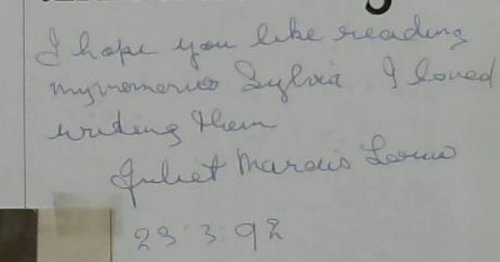 I hope you like reading
my memories Sylvia I loved
writing them
Juliet Marais Louw
23.3.92